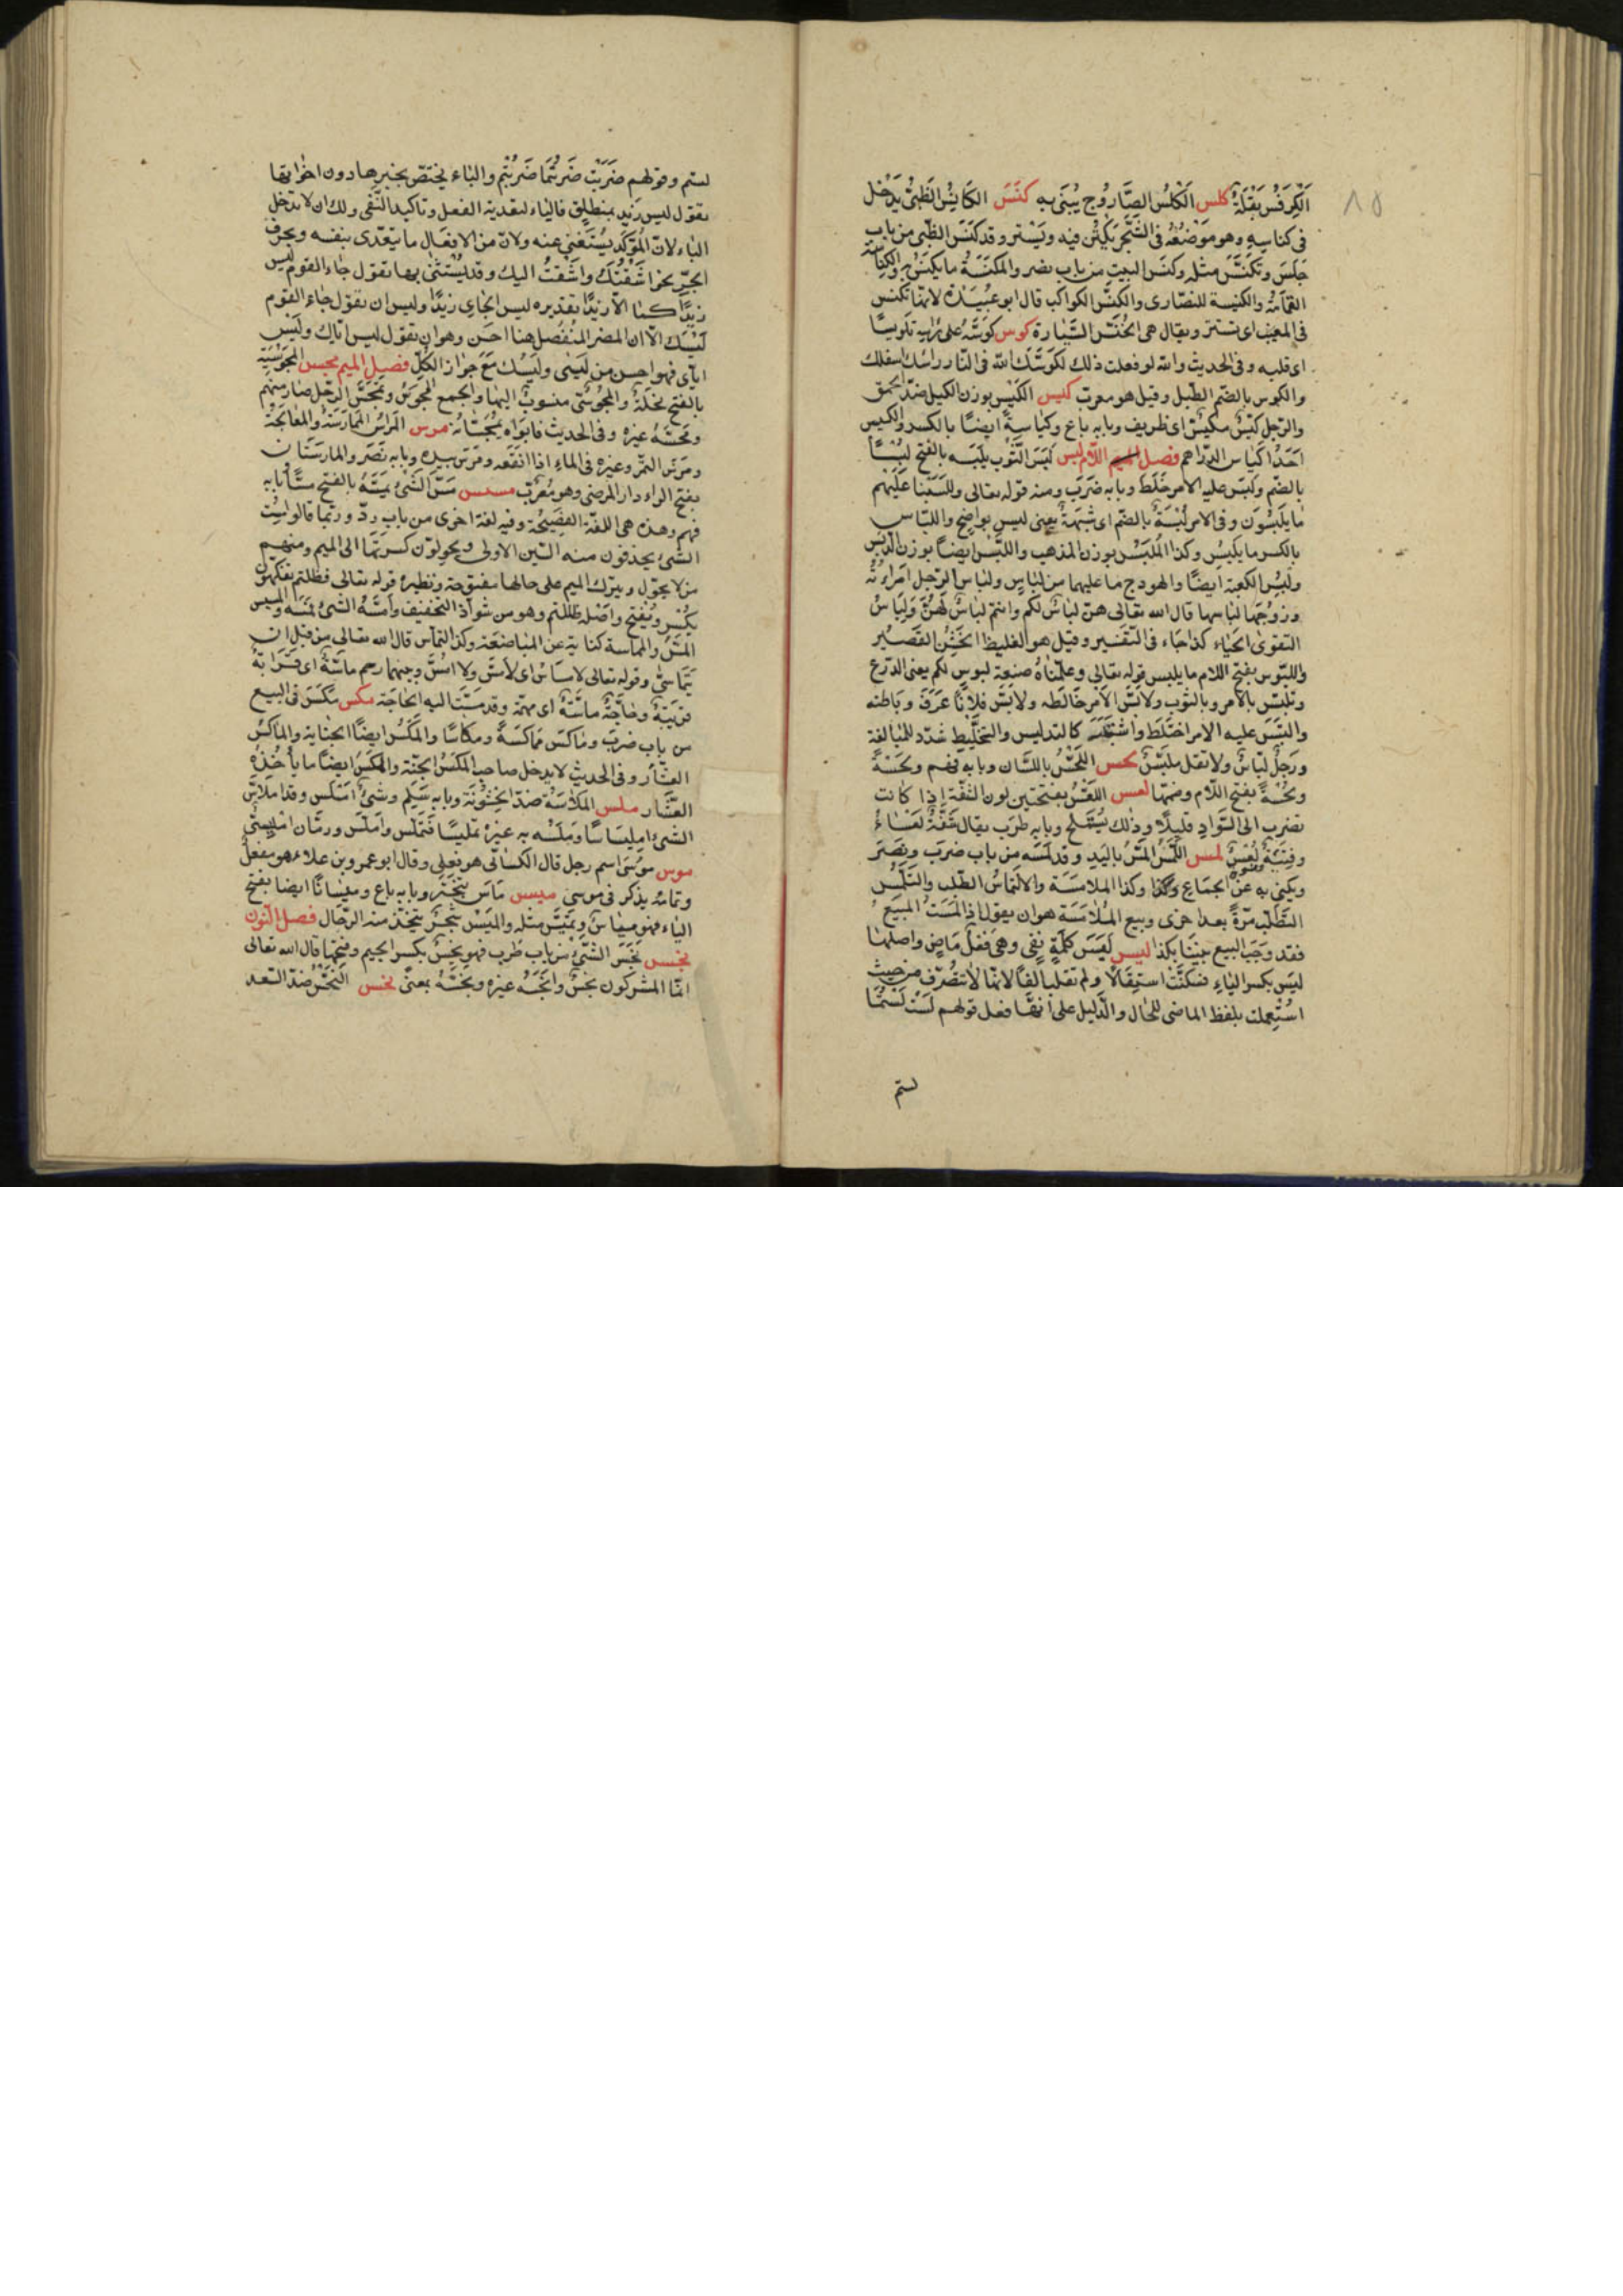 ١٥
الكرفس بقلة كلس الكلس الصاروج يبنى به كنس الكانس الظبى يدخل
فى كناسه وهو موضعه فى الشجر يكتن فيه ويستتر وقد كنس الظبى من باب
جلس وتكنس مثله وكنس البيت من باب نصر والمكنسة ما يكنس به والكناسة
القمامة والكنيسة للنصارى والكنس الكواكب قال ابو عبيدة لانها تكنس
فى المغيب اى تستتر ويقال هى الخنس السيارة كوس كوسه على رأسه تكويسا
اى قلبه وفى الحديث والله لو فعلت ذلك لكوسك الله فى النار رأسك اسفلك
والكوس بالضم الطبل وقيل هو معرب كيس الكيس بوزن الكيل ضد الحمق
والرجل كيس مكيس اى ظريف وبابه باع وكياسة ايضا بالكسر والكيس
احد اكياس الدراهم فصل اللام لبس لبس الثوب يلبسه بالفتح لبسا
بالضم ولبس عليه الامر خلط وبابه ضرب ومنه قوله تعالى وللبسنا عليهم
ما يلبسون وفى الامر لبسة بالضم اى شبهة يعنى ليس بواضح واللباس
بالكسر ما يلبس وكذا الملبس بوزن المذهب واللبس ايضا بوزن الدبس
ولبس الكعبة ايضا والهودج ما عليهما من لباس ولباس الرجل امراته
وزوجها لباسها قال الله تعالى هن لباس لكم وانتم لباس لهن ولباس
التقوى الحياء كذا جاء فى التفسير وقيل هو الغليظ الخشن القصير
واللبوس بفتح اللام ما يلبس قوله تعالى وعلمناه صنعة لبوس لكم يعنى الدرع
وتلبس بالامر وبالثوب ولابس الامر خالطه ولابس فلانا عرف وباطنه
والتبس عليه الامر اختلط واشتبه كالتدليس والتخليط شدد للمبالغة
ورجل لباس ولا تقل ملبس لحس اللحس باللسان وبابه فهم ولحسة
ولحسة بفتح اللام وضمها لعس اللعس بفتحتين لون الشفة اذا كانت
تضرب الى السواد قليلا وذلك يستملح وبابه طرب يقال شفة لعساء
وفتية لعس لمس اللمس المس باليد وقد لمسه من باب ضرب ونصر
ويكنى به عن الجماع وكذا الملامسة والالتماس الطلب والتلمس
التطلب مرة بعد اخرى وبيع الملامسة هو ان يقول اذا لمست المبيع
فقد وجب البيع بيننا بكذا ليس ليس كلمة نفى وهى فعل ماض واصلها
ليس بكسر الياء فسكنت استثقالا ولم تقلب الفا لانها لا تتصرف من حيث
استعملت بلفظ الماضى للحال والدليل على انها فعل قولهم لست لستما
لستم
لستم وقولهم ضربت ضربتما ضربتم والباء يختص بخبرها دون اخواتها
تقول ليس زيد بمنطلق فالباء لتعدية الفعل وتاكيد النفى ولك ان لا تدخل
الباء لان المؤكد يستغنى عنه ولان من الافعال ما يتعدى بنفسه وبحرف
الجر نحو اشتقتك واشتقت اليك وقد يستثنى بها تقول جاء القوم ليس
زيدا كما الا زيدا تقديره ليس الجاى زيدا وليس ان تقول جاء القوم
ليسك الا ان المضمر المنفصل هنا احسن وهو ان تقول ليس اياك وليس
اياى فهو احسن من ليسى وليسك مع جواز الكل فصل الميم مجس المجوسية
بالفتح نحلة والمجوسى منسوب اليها والجمع المجوس وتمجس الرجل صار منهم
ومجسه غيره وفى الحديث فابواه يمجسانه مرس المراس الممارسة والمعالجة
ومرس التمر وغيره فى الماء اذا انقعه ومرس بيده وبابه نصر والمارستان
بفتح الراء دار المرضى وهو معرب مسس مس الشئ يمسه بالفتح مسا وبابه
فهم وهذه هى اللغة الفصيحة وفيه لغة اخرى من باب رد وربما قالوا مست
الشئ يحذفون منه السين الاولى ويحولون كسرتها الى الميم ومنهم
من لا يحول ويترك الميم على حالها مفتوحة ونظيره قوله تعالى فظلتم تفكهون
يكسر ويفتح واصله ظللتم وهو من شواذ التخفيف وامسه الشئ فمسه والمسيس
المس والمماسة كناية عن المباضعة وكذا التماس قال الله تعالى من قبل ان
يتماسا وقوله تعالى لا مساس اى لا مس ولا امس وبينهما رحم ماسة اى قرابة
قريبة وحاجة ماسة اى مهمة وقد مست اليه الحاجة مكس مكس فى البيع
من باب ضرب وماكس مماكسة ومكاسا والمكس ايضا الجباية والماكس
العشار وفى الحديث لا يدخل صاحب المكس الجنة والمكس ايضا ما ياخذه
العشار ملس الملاسة ضد الخشونة وبابه سلم وشئ املس وقد املاس
الشئ امليساسا وملسه به غيره تمليسا فتملس واملس ورمان امليسى
موس موسى اسم رجل قال الكسائى هو فعلى وقال ابو عمرو بن علاء هو مفعل
وتمامه يذكر فى موسى ميس ماس تبختر وبابه باع وميسانا ايضا بفتح
الياء فهو مياس وتميس مثله والميس شجر يتخذ منه الرحال فصل النون
نجس نجس الشئ من باب طرب فهو نجس بكسر الجيم وفتحها قال الله تعالى
انما المشركون نجس وانجسه غيره ونجسه بمعنى نحس النحس ضد السعد